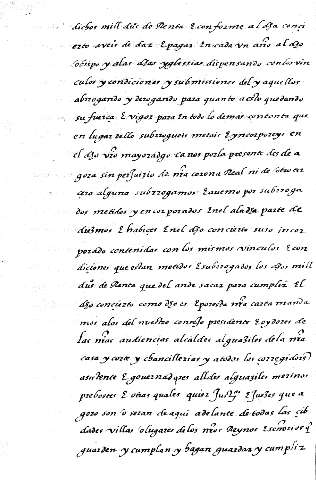 dichos mill dus de Renta E conforme al dho conçi
erto aveis de dar E pagar En cada vn año al dho
obispo y a las dhas yglesias dispensando con los vin
culos y condiciones y submisiones del y aquellos
abrrogando y derogando para quanto a esto quedando
su fuerça E vigor para En todo lo demas con tanto que
en lugar dello subrrogueis metais E yncorporeys en
el dho vro mayorazgo ca nos por la presente desde a
gora sin perjuizio de nra corona Real ni de otro ter
cero alguno subrrogamos E avemos por subrroga
dos metidos y encorporados En el a la dha parte de
diezmos E habices En el dho concierto suso incor
porado contenidas con los mismos vinculos E con
diciones que estan metidos E subrrogados los dhos mill
dus de Renta que del an de sacar para cumplir El
dho concierto como dho es E por esta nra carta manda
mos a los del nuestro consejo presidente E oydores de
las nras audiencias alcaldes alguaziles de la nra
casa y corte y chancillerias y a todos los corregidores
asistente E governadores alldes alguaziles merinos
prebostes E otras quales quier Justas E Juezes que a
gora son o seran de aqui adelante de todas las çib
dades villas o lugares de los nros Reynos E señorios q
guarden y cumplan y hagan guardar y cumplir